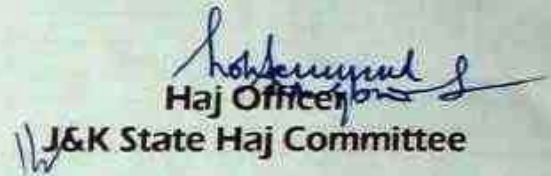 Haj Officer
J&K State Haj Committee